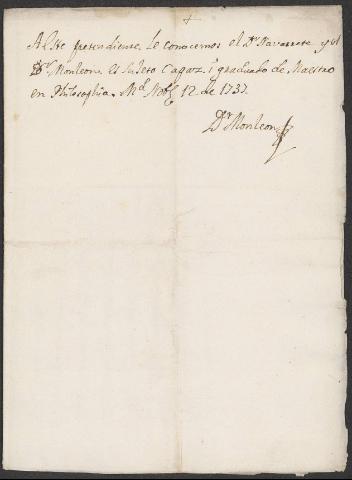 A este pretendiente le conocemos el Dr. Navarrete y el
Dr. Monleon. Es sujeto capaz y graduado de Maestro
en Philosophia. Md. Nobe. 12 de 1737.
Dr Monleon